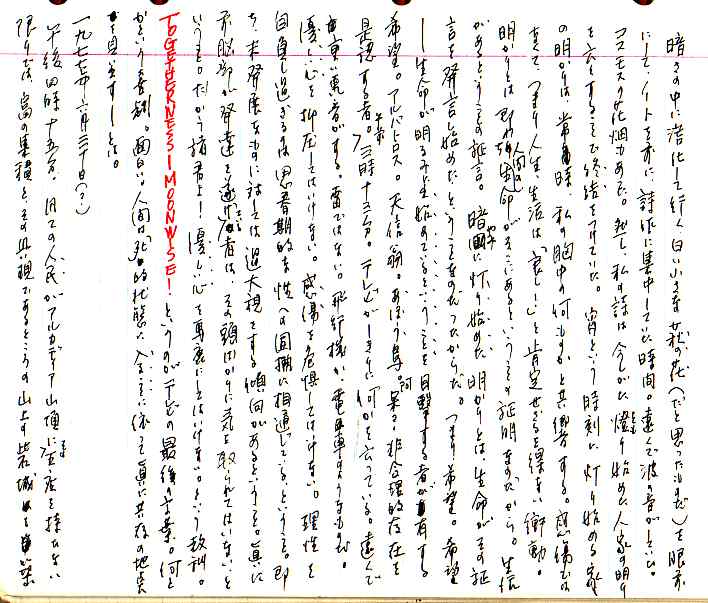 暗さの中に溶化して行く白い小さな秋の花(だと思ったものだ)を眼前
にして、ノートを前に詩作に集中していた時間。遠くで波の音がしていた。
コスモスの花畑もあった。然し、私の詩は今しがた燈り始めた人家の明り
を云々することで終結をつけていた。宵という時刻に灯り始める家
の明かりは、常時、私の胸中の何ものかと共鳴する。感傷では
なくて、つまり人生、生活は「哀しい」と肯定せざるを得ない衝動。
明かりとは即わち人間の生命がそこにあるということの証明なのだから。生活
があるということの証言。暗闇に灯り始めた明かりとは生命がその証
言を発言し始めたということなのだったからだ。つまり希望。希望
―生命が明るみに生き始めているということを目撃する者が有する
希望。アルバトロス。天信翁。あほう鳥。呆る。非合理的存在を
是認する者。午前三時十三分。テレビがしきりに何かを云っている。遠くで
重い轟音がする。雷ではない。飛行機か、電車のようなものだ。
優しい心を抑圧してはいけない。感傷を危惧してはいけない。理性を
自負し過ぎるのは思春期的な性への固執に相通じているということ。即
ち、未発展なものに対しては過大視をする傾向があるということ。真に
頭脳が発達を遂げた者は、その頭ばかりに気を取られてはいないと
いうこと。だから諸君よ!優しい心を馬鹿にしてはいけない。という教訓。
TOGETHERNESS! MOONWISE! というのがテレビの最後の言葉。何と
かという喜劇。面白い。人間は死的状態に入ることに依って真に共存の地点
を目差す―とは。
一九七七年六月三十日(?)
午後四時十五分。凡ての人民がアルカディア山頂に家屋を持たない
限りでは、富の集積と、その具現であるところの山上の岩城を築